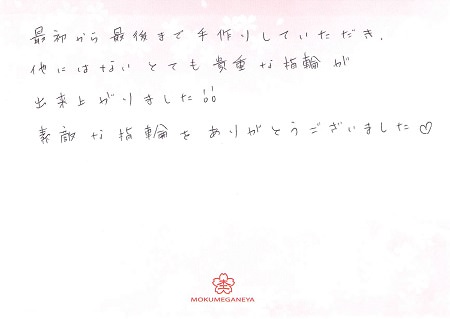 最初から最後まで手作りしていただき、
他にはないとても貴重な指輪が
出来上がりました!!
素敵な指輪をありがとうございました♡
MOKUMEGANEYA